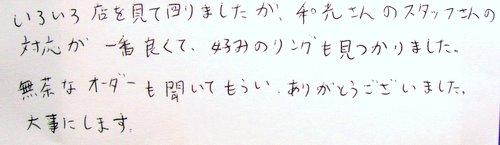 いろいろ店を見て回りましたが、和光さんのスタッフさんの
対応が一番良くて、好みのリングも見つかりました。
無茶なオーダーも聞いてもらい、ありがとうございました。
大事にします。